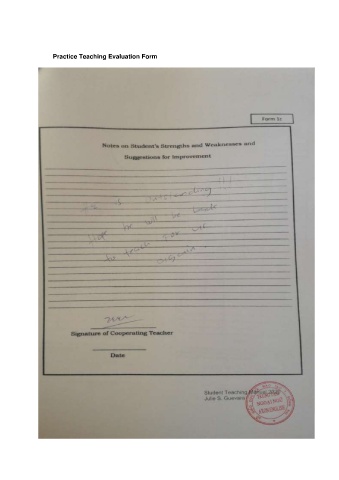 Practice Teaching Evaluation Form
Notes on Student's Strengths and Weaknesses and
Suggestions for Improvement
is outstanding !!!
he will be back
to teach
again.
Signature of Cooperating Teacher
Date
Student Teaching
Julie S. Guevara